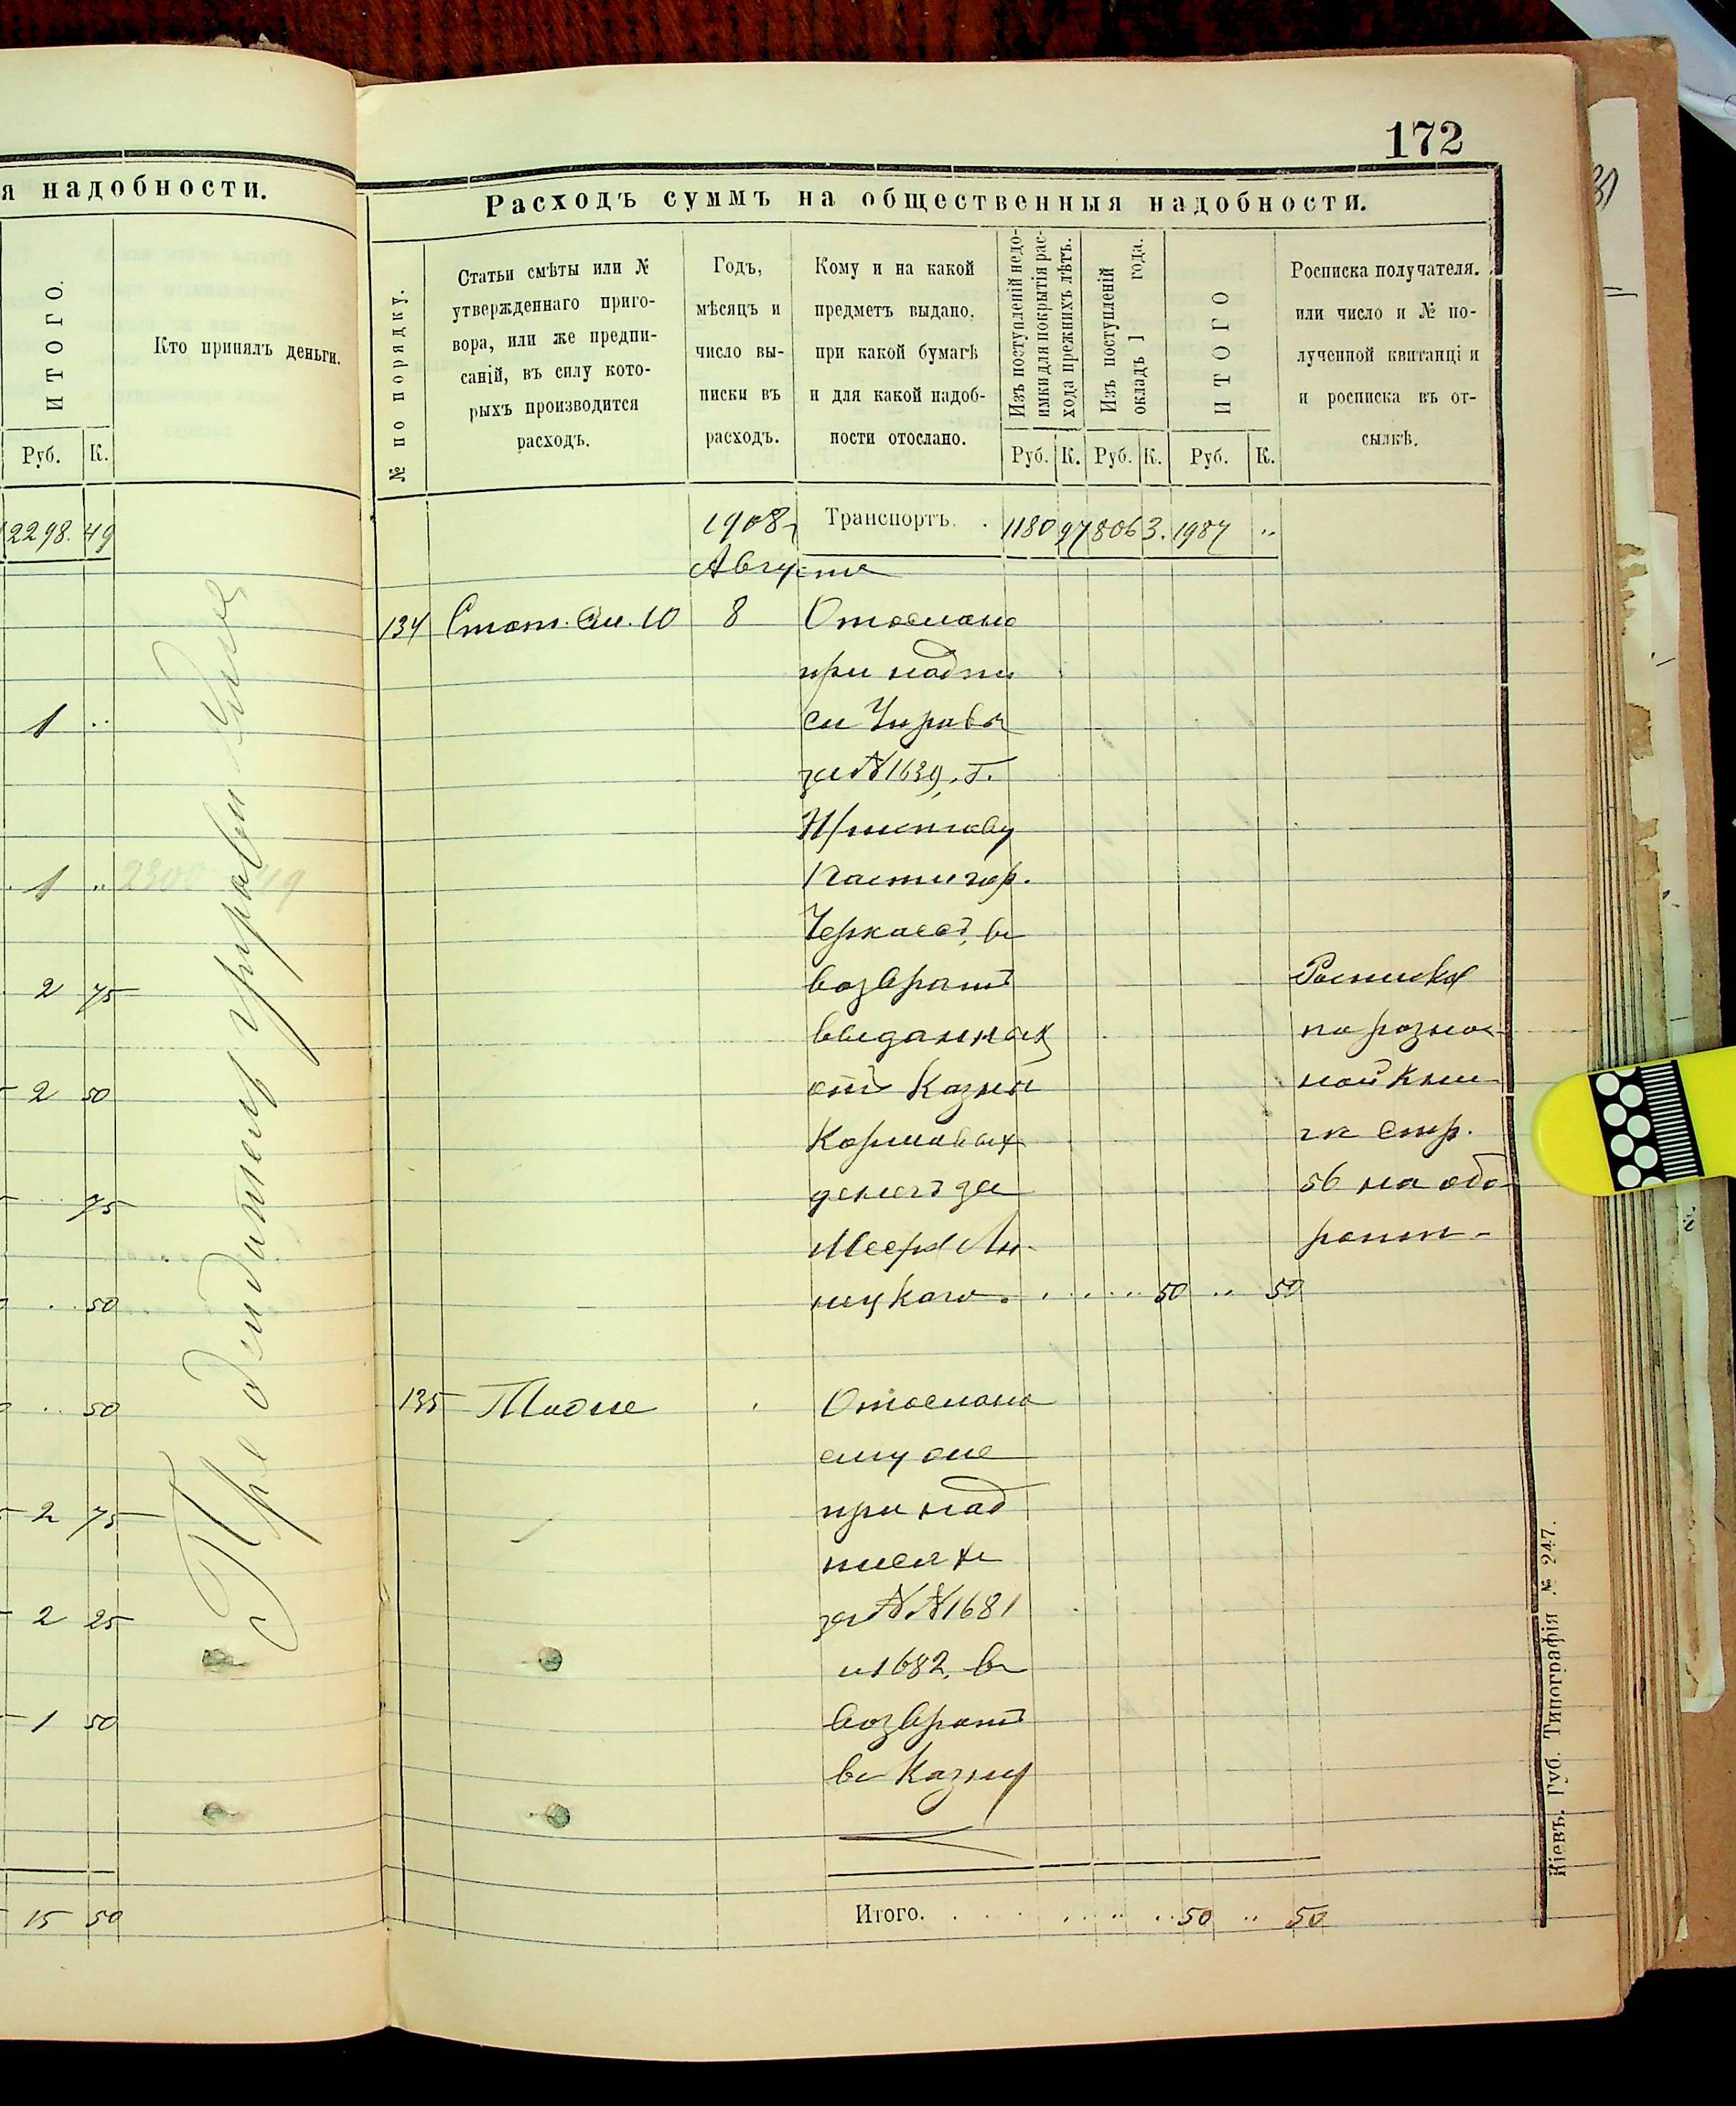 172
я надобности.
ИТОГО.
Кто принялъ деньги.
Руб. К.
2298. 49
1 ..
1 .. 2300 49
2 75
2 50
75
. 50
.. 50
2 75
2 25
1 50
15 50
Расходъ суммъ на общественныя надобности.
№ по порядку.
Статьи смѣты или №
утвержденнаго приго-
вора, или же предпи-
саній, въ силу кото-
рыхъ производится
расходъ.
Годъ,
мѣсяцъ и
число вы-
писки въ
расходъ.
Кому и на какой
предметъ выдано,
при какой бумагѣ
и для какой надоб-
ности отослано.
Изъ поступленій недо-
имки для покрытія рас-
хода прежнихъ лѣтъ.
Изъ поступленій
окладъ 1 года.
ИТОГО
Росписка получателя.
или число и № по-
лученной квитанціи
и росписка въ от-
сылкѣ.
Руб. К. Руб. К. Руб. К.
1908 Транспортъ. . 1180 97 806 3. 1987 ..
Августа
134 Стат. см. 10 8 Отослано
при надпи
си Управы
за №1639, Г.
Приставу
1 части гор.
Черкассъ, въ
возвратъ
выданныхъ
отъ Казны
Кормовыхъ
денегъ за
Меера Ли-
нецкаго . . . . . .. 50 .. 50
Росписка
по разнос-
ной кни-
гѣ стр.
56 на обо-
ротѣ-
135 Тоже Отослано
ему же
при над
писяхъ
за №№1681
и 1682, въ
возвратъ
въ Казну
Итого. . . . . .. .. 50 .. 50
Кіевъ. Губ. Типографія № 247.